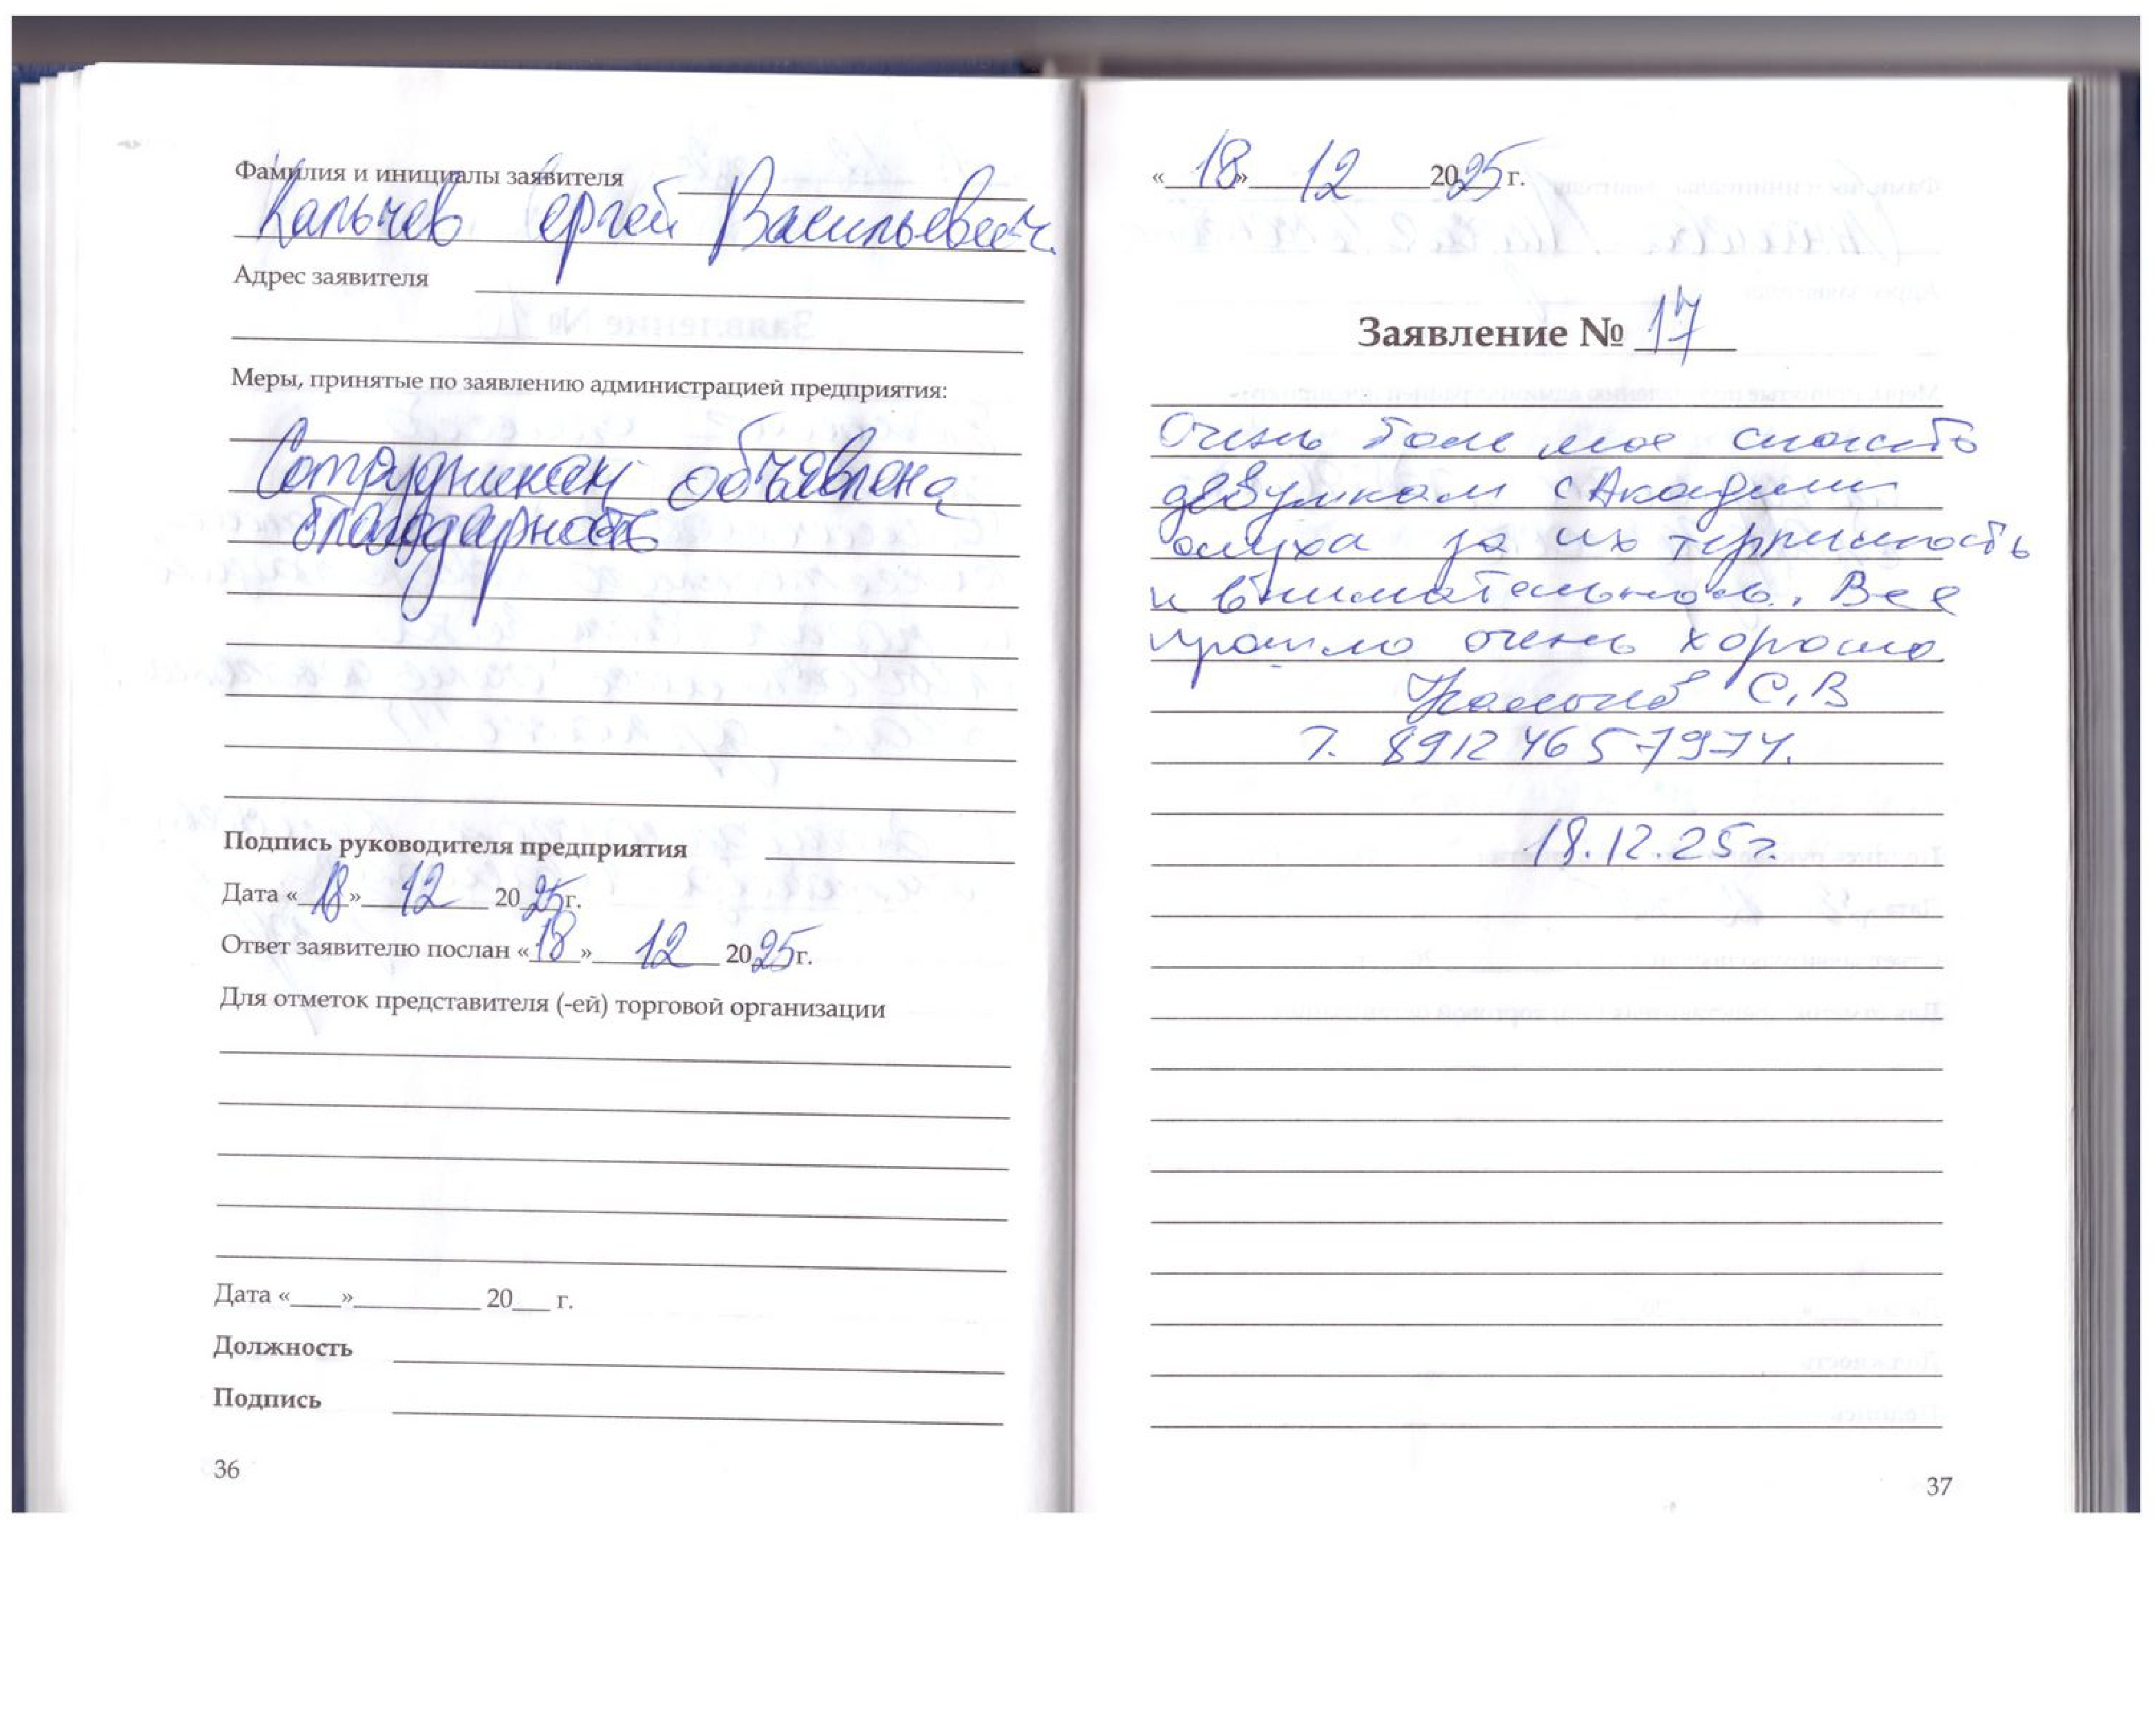 Фамилия и инициалы заявителя
Калычев Сергей Васильевич
Адрес заявителя
Меры, принятые по заявлению администрацией предприятия:
Сотрудникам объявлена
благодарность
Подпись руководителя предприятия
Дата «18» 12 2025г.
Ответ заявителю послан «18» 12 2025г.
Для отметок представителя (-ей) торговой организации
Дата «____»__________ 20___ г.
Должность
Подпись
36
«18» 12 2025 г.
Заявление № 17
Очень большое спасибо
девушкам с Академии
слуха за их терпимость
и внимательность. Все
прошло очень хорошо
С.В
т. 89124657974.
18.12.25г.
37